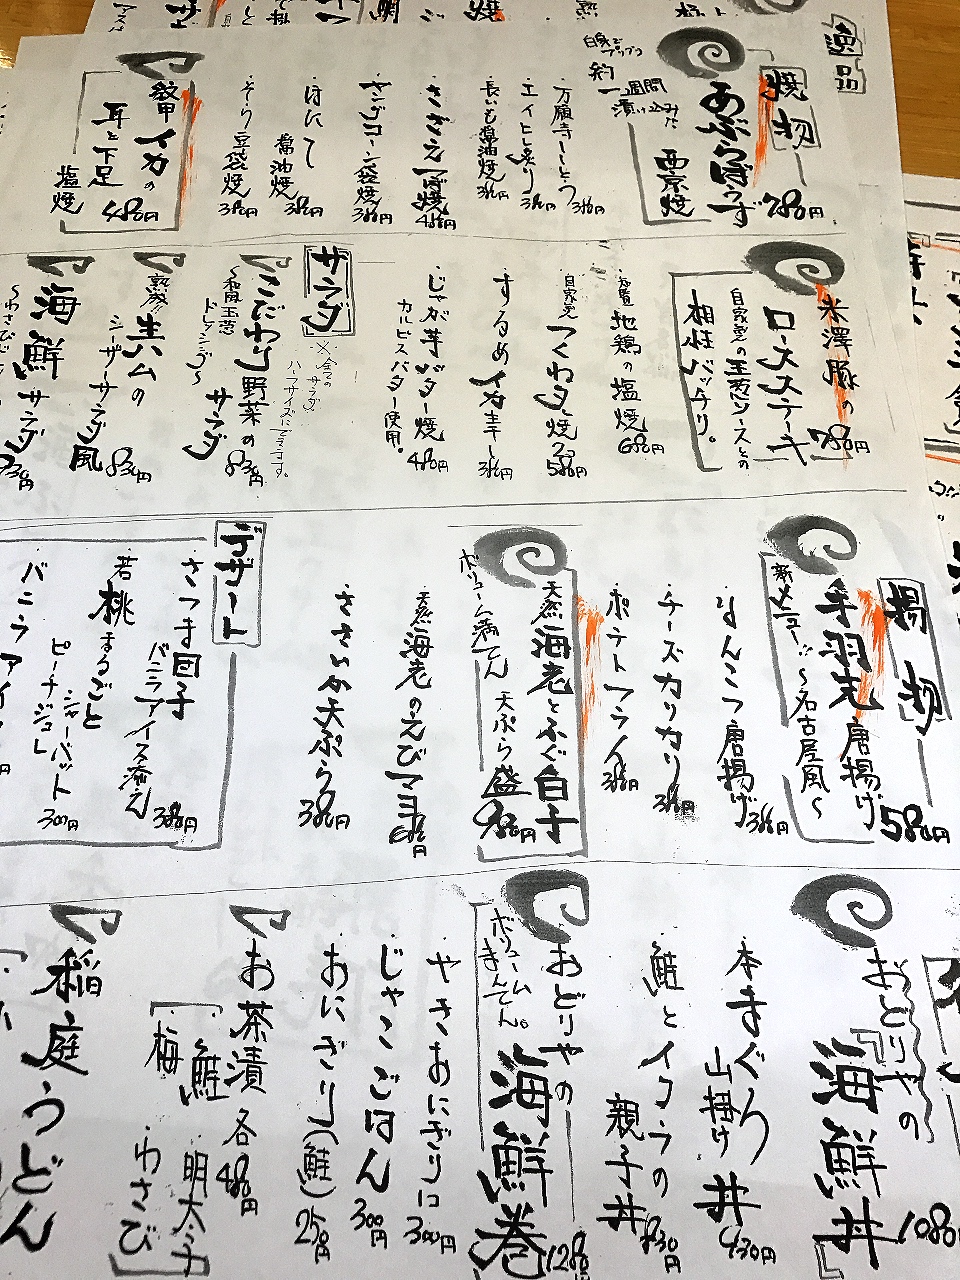 逸品
焼物
あぶらぼうず
西京焼
780円
白身でプリプリ
約一週間
漬け込みました
万願寺ししとう
380円
エイヒレ炙り
380円
長いも醤油焼
380円
さざえつぼ焼
480円
ヤングコーン袋焼
380円
ほたて
醤油焼
380円
そり豆袋焼
380円
甲イカの
耳と下足
塩焼
480円
米澤豚の
ロースステーキ
780円
自家製の玉葱ソースとの
相性バッチリ。
地鶏の塩焼
680円
自家製
つくね焼
580円
するめイカ
380円
じゃが芋バター焼
カルピスバター使用。
480円
サラダ
※全てのサラダ
ハーフサイズにできます。
こだわり野菜の
サラダ
〜和風玉葱
ドレッシング〜
830円
熟成!!生ハムの
シーザーサラダ風
830円
海鮮サラダ
830円
揚物
手羽先唐揚げ
580円
新メニュー!!〜名古屋風〜
なんこつ唐揚げ
380円
チーズカリカリ
380円
ポテトフライ
380円
天然海老とふぐ白子
天ぷら盛
980円
ボリューム満てん
天然海老のえびマヨ
680円
ささみ天ぷら
380円
デザート
さつま団子
バニラアイス添え
380円
若桃まるごと
シャーベット
ピーチジュレ
300円
バニラアイス
おどりやの
海鮮丼
1080円
本まぐろ
山掛け丼
430円
鮭とイクラの
親子丼
830円
おどりやの
海鮮巻
1280円
ボリューム
まんてん。
やきおにぎり
300円
じゃこごはん
300円
おにぎり(鮭)
250円
お茶漬
各480円
「梅
鮭
明太子
わさび」
稲庭うどん